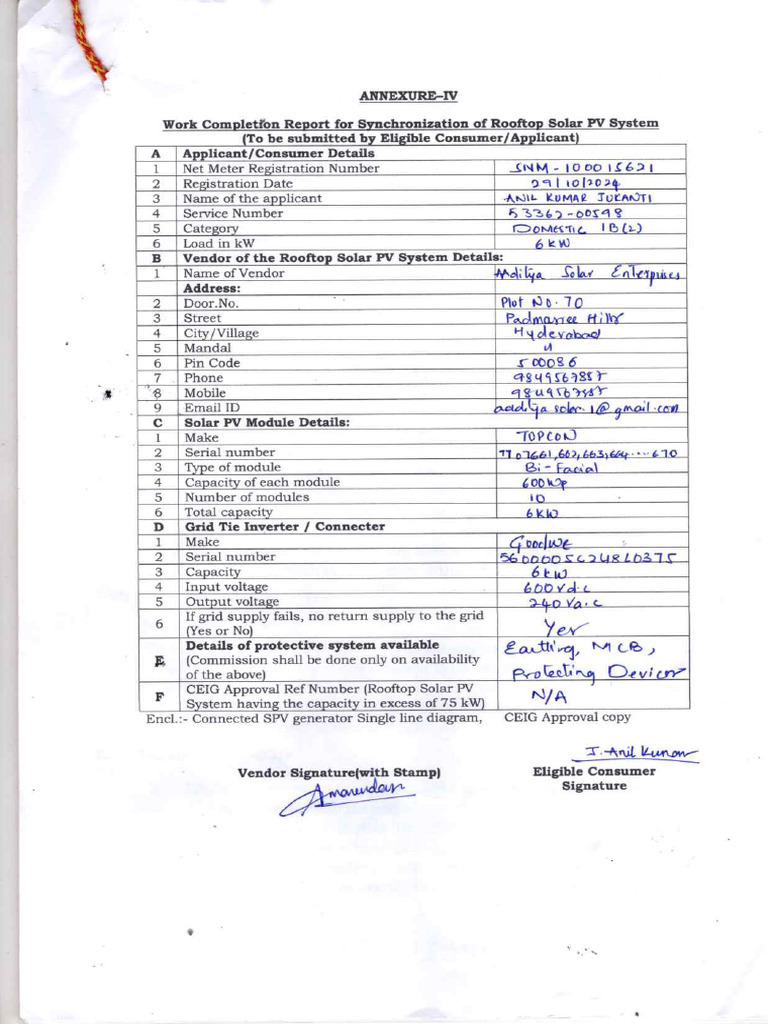 ANNEXURE–IV
Work Completion Report for Synchronization of Rooftop Solar PV System
(To be submitted by Eligible Consumer/Applicant)
A Applicant/Consumer Details
1 Net Meter Registration Number SNM - 100015621
2 Registration Date 29/10/2024
3 Name of the applicant ANIL KUMAR JUKANTI
4 Service Number 53362-00598
5 Category DOMESTIC 1B(2)
6 Load in kW 6 KW
B Vendor of the Rooftop Solar PV System Details:
1 Name of Vendor Aditya Solar Enterprises
Address:
2 Door.No. Plot No. 70
3 Street Padmasree Hills
4 City/Village Hyderabad
5 Mandal "
6 Pin Code 500086
7 Phone 9849567857
8 Mobile 9849567857
9 Email ID aaditya solar.1@gmail.com
C Solar PV Module Details:
1 Make TOPCON
2 Serial number 7707661,662,663,664....670
3 Type of module Bi-Facial
4 Capacity of each module 600Wp
5 Number of modules 10
6 Total capacity 6KW
D Grid Tie Inverter / Connecter
1 Make GoodWE
2 Serial number 5600005C248L0375
3 Capacity 6KW
4 Input voltage 600Vd.c
5 Output voltage 240Va.c
6 If grid supply fails, no return supply to the grid (Yes or No) Yes
E Details of protective system available Earthing, MCB,
(Commission shall be done only on availability of the above) Protecting Devices
F CEIG Approval Ref Number (Rooftop Solar PV System having the capacity in excess of 75 kW) N/A
Encl.:- Connected SPV generator Single line diagram, CEIG Approval copy
J. Anil Kumar
Vendor Signature(with Stamp) Eligible Consumer
Signature